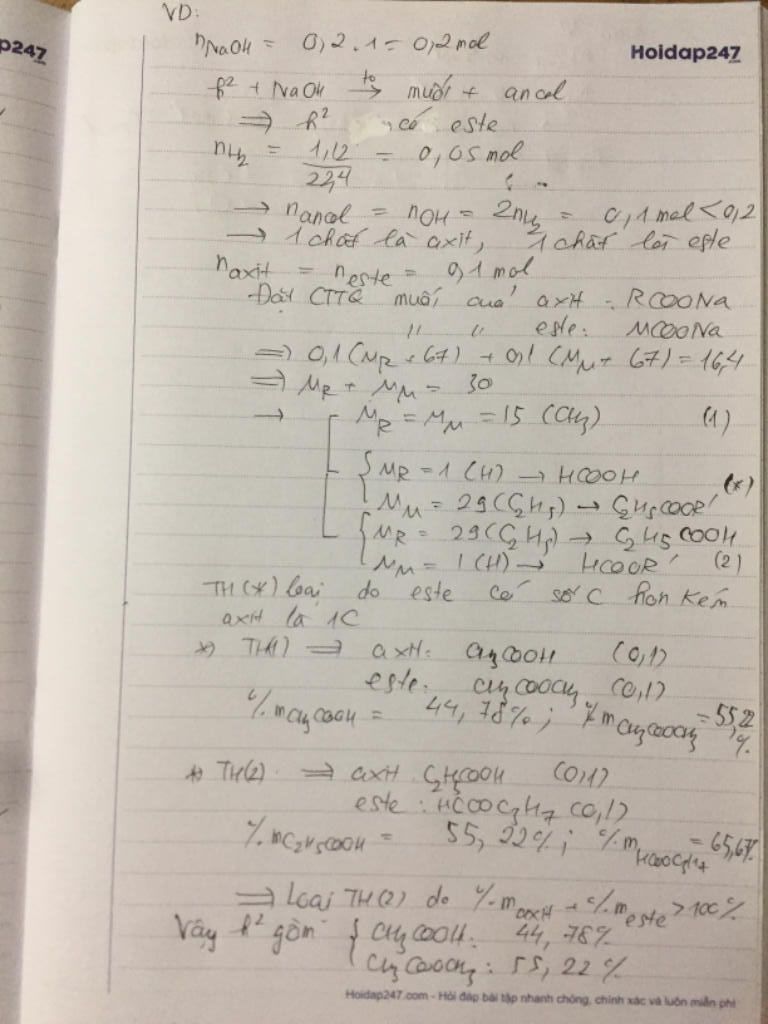 VD:
p247
Hoidap247
nNaOH = 0,2.1 = 0,2 mol
h² + NaOH t° → muối + ancol
⇒ h² có este
nH₂ = 1,12/22,4 = 0,05 mol
→ nancol = nOH = 2nH₂ = 0,1 mol < 0,2
→ 1 chất là axit, 1 chất là este
naxit = neste = 0,1 mol
Đặt CTTQ muối của axit: RCOONa
〃 〃 este: MCOONa
⇒ 0,1(MR + 67) + 0,1(MM + 67) = 16,4
⇒ MR + MM = 30
→ MR = MM = 15 (CH₃) (1)
MR = 1 (H) → HCOOH (*)
MM = 29 (C₂H₅) → C₂H₅COOR'
MR = 29 (C₂H₅) → C₂H₅COOH
MM = 1 (H) → HCOOR' (2)
TH(*) loại do este có số C hơn kém
axit là 1C
*) TH(1) ⇒ axit: CH₃COOH (0,1)
este: CH₃COOCH₃ (0,1)
%mCH₃COOH = 44,78%; %mCH₃COOCH₃ = 55,22%
*) TH(2) ⇒ axit C₂H₅COOH (0,1)
este: HCOOC₃H₇ (0,1)
%mC₂H₅COOH = 55,22%; %mHCOOC₃H₇ = 65,67%
⇒ Loại TH(2) do %maxit + %meste > 100%
Vậy h² gồm { CH₃COOH: 44,78%
CH₃COOCH₃: 55,22%
Hoidap247.com - Hỏi đáp bài tập nhanh chóng, chính xác và luôn miễn phí